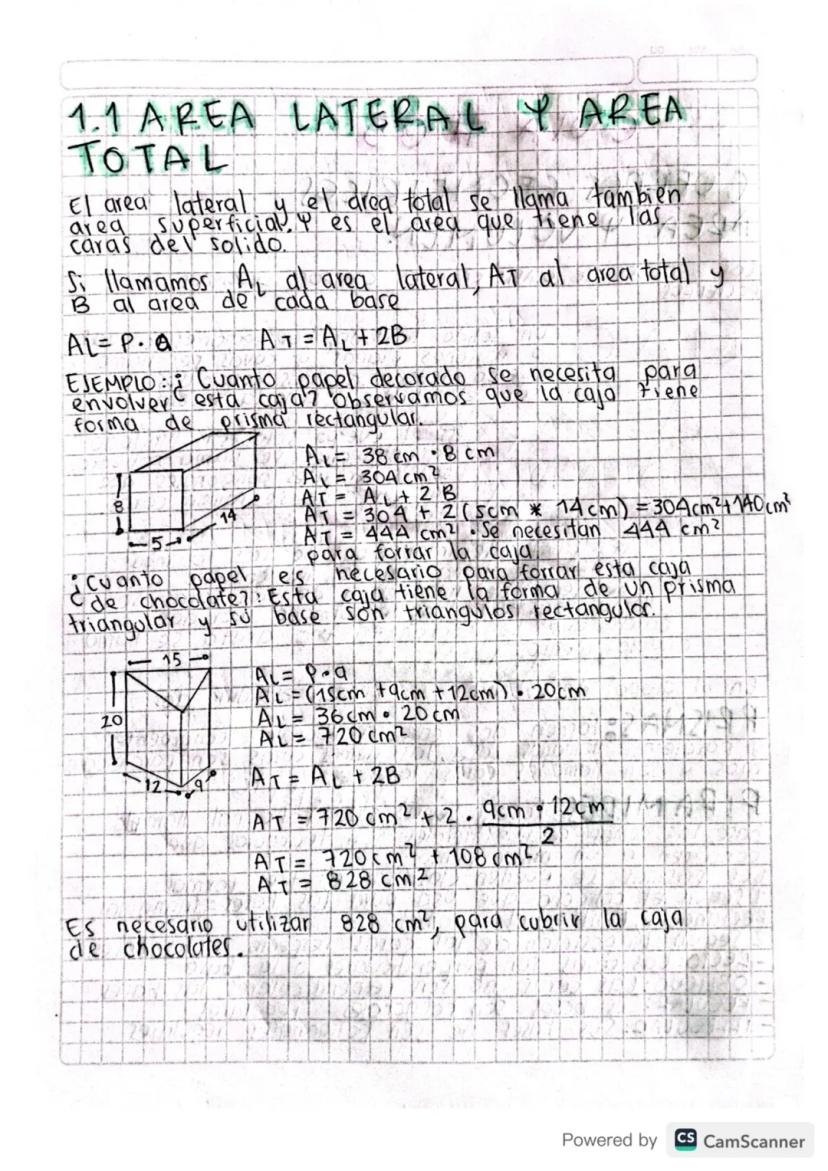 1.1 AREA LATERAL Y AREA
TOTAL
El area lateral y el area total se llama tambien
area superficial. Y es el area que tiene las
caras del solido.
Si llamamos AL al area lateral, AT al area total y
B al area de cada base
AL= P · a AT = AL + 2B
EJEMPLO: ¿Cuanto papel decorado se necesita para
envolver esta caja? Observamos que la caja tiene
forma de prisma rectangular.
AL= 38 cm · 8 cm
AL= 304cm²
AT= AL + 2B
8
14
5
AT = 304 + 2(5cm * 14cm) = 304cm²+140cm²
AT = 444 cm². Se necesitan 444 cm²
para forrar la caja
¿Cuanto papel es necesario para forrar esta caja
de chocolate?: Esta caja tiene la forma de un prisma
triangular y su base son triangulos rectangular.
15
20
12
9
AL= P·a
AL=(15cm +9cm +12cm) · 20cm
AL= 36cm · 20cm
AL= 720cm²
AT = AL + 2B
AT = 720 cm² + 2 · 9cm · 12cm
2
AT = 720cm² + 108cm²
AT = 828 cm²
Es necesario utilizar 828 cm², para cubrir la caja
de chocolates.
Powered by CS CamScanner